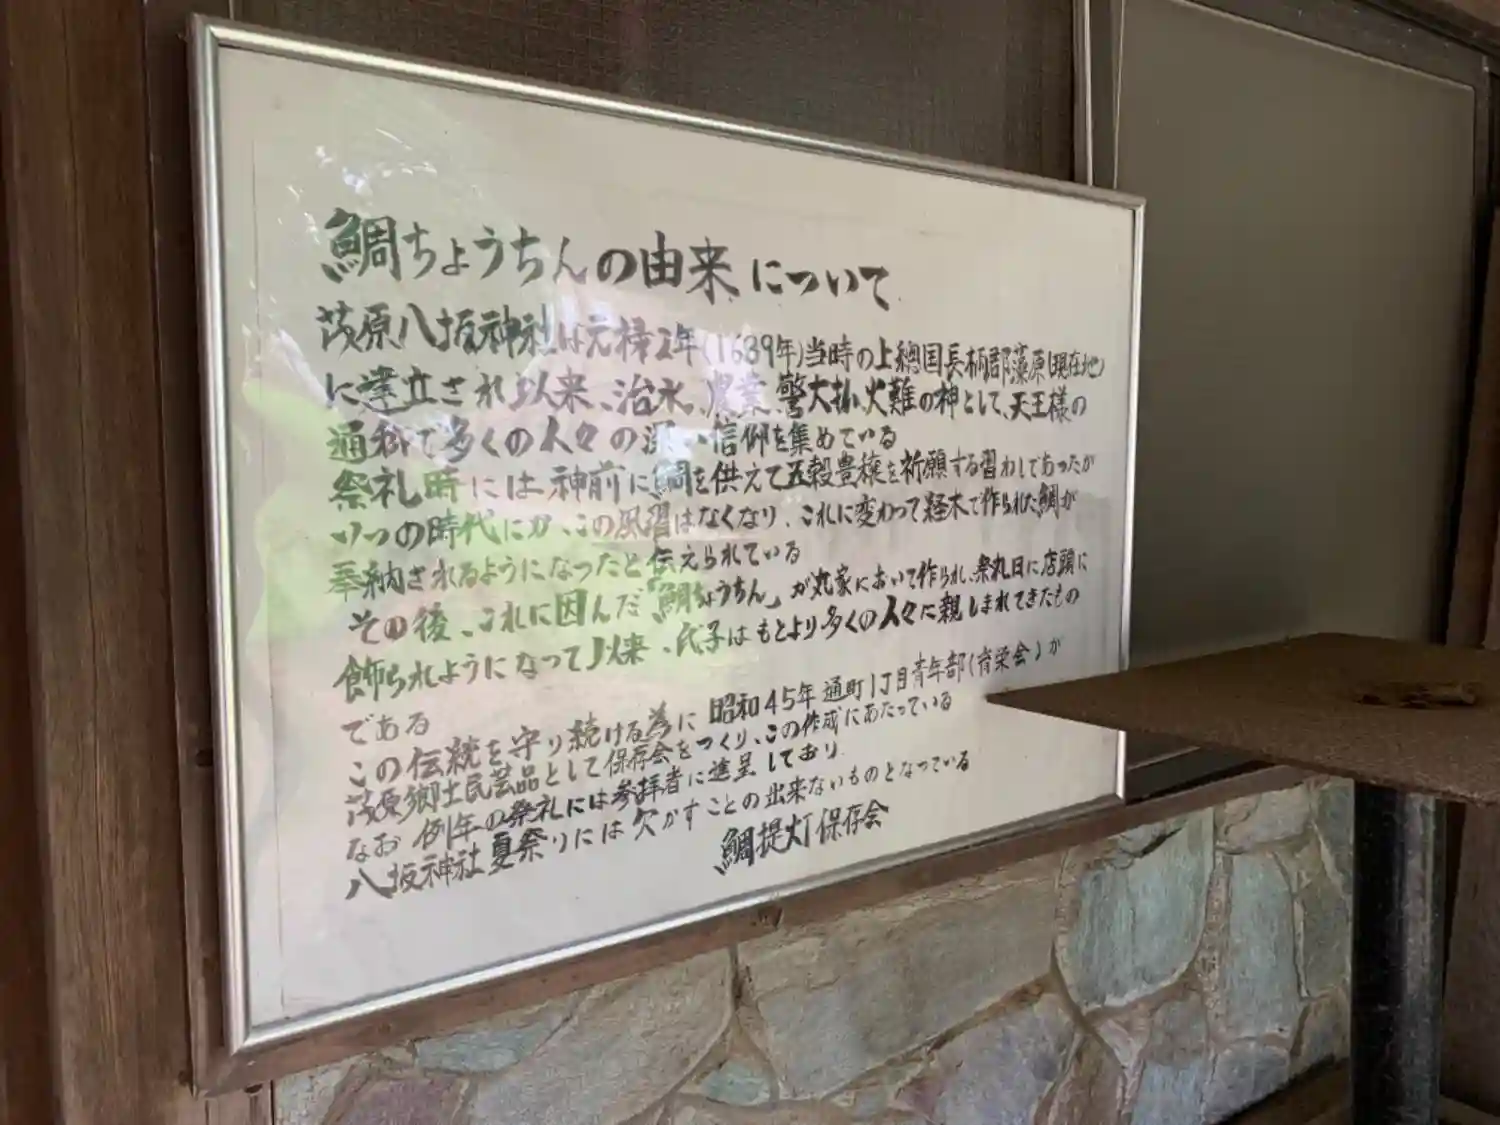 鯛ちょうちんの由来について
茂原八坂神社は元禄2年(1689年)当時の上總国長柄郡藻原(現在地)
に建立され以来、治水、農業、警大払、火難の神として、天王様の
通称で多くの人々の深い信仰を集めている
祭礼時には神前に鯛を供えて五穀豊穣を祈願する習わしであったが
いつの時代にか、この風習はなくなり、これに変わって経木で作られた鯛が
奉納されるようになったと伝えられている
その後、これに因んだ「鯛ちょうちん」が丸家において作られ、祭丸日に店頭に
飾られれようになって以来、氏子はもとより多くの人々に親しまれてきたもの
である
この伝統を守り続ける為に昭和45年通町1丁目青年部(育栄会)が
茂原郷土民芸品として保存会をつくり、この作成にあたっている
なお例年の祭礼には参拝者に進呈しており
八坂神社夏祭りには欠かすことの出来ないものとなっている
鯛提灯保存会